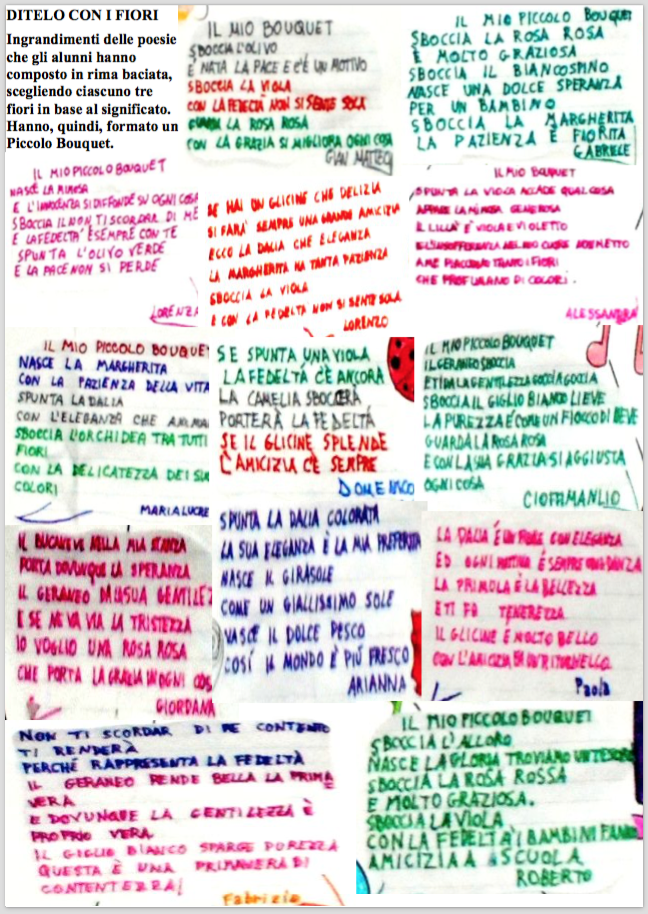 DITELO CON I FIORI
Ingrandimenti delle poesie
che gli alunni hanno
composto in rima baciata,
scegliendo ciascuno tre
fiori in base al significato.
Hanno, quindi, formato un
Piccolo Bouquet.
IL MIO BOUQUET
SBOCCIA L'OLIVO
È NATA LA PACE E C'È UN MOTIVO
SBOCCIA LA VIOLA
CON LA FEDELTÀ NON SI SENTE SOLA
GUARDA LA ROSA ROSA
CON LA GRAZIA SI MIGLIORA OGNI COSA
GIAN MATTEO
IL MIO PICCOLO BOUQUET
SBOCCIA LA ROSA ROSA
È MOLTO GRAZIOSA
SBOCCIA IL BIANCOSPINO
NASCE UNA DOLCE SPERANZA
PER UN BAMBINO
SBOCCIA LA MARGHERITA
LA PAZIENZA È FIORITA
GABRIELE
IL MIO PICCOLO BOUQUET
NASCE LA MIMOSA
E L'INNOCENZA SI DIFFONDE SU OGNI COSA
SBOCCIA IL NON TI SCORDAR DI ME
E LA FEDELTA' È SEMPRE CON TE
SPUNTA L'OLIVO VERDE
E LA PACE NON SI PERDE
LORENZA
SE HAI UN GLICINE CHE DELIZIA
SI FARA' SEMPRE UNA GRANDE AMICIZIA
ECCO LA DALIA CHE ELEGANZA
LA MARGHERITA HA TANTA PAZIENZA
SBOCCIA LA VIOLA
E CON LA FEDELTA NON SI SENTE SOLA
LORENZO
IL MIO BOUQUET
SPUNTA LA VIOLA ACCADE QUALCOSA
APPARE LA MIMOSA GENEROSA
IL LILLA' È VIOLA E VIOLETTO
NEL MIO CUORE
A ME PIACCIONO TANTO I FIORI
CHE PROFUMANO DI COLORI.
ALESSANDRA
IL MIO PICCOLO BOUQUET
NASCE LA MARGHERITA
CON LA PAZIENZA DELLA VITA
SPUNTA LA DALIA
CON L'ELEGANZA CHE
SBOCCIA L'ORCHIDEA TRA TUTTI
FIORI
CON LA DELICATEZZA DEI SU
COLORI
MARIALUCRE
SE SPUNTA UNA VIOLA
LA FEDELTÁ C'È ANCORA
LA CAMELIA SBOCCERÀ
PORTERÀ LA FEDELTÁ
SE IL GLICINE SPLENDE
L'AMICIZIA C'È SEMPRE
DOMENICO
IL MIO PICCOLO BOUQUET
IL GERANEO SBOCCIA
E TI DÀ LA GENTILEZZA GOCCIA A GOCCIA
SBOCCIA IL GIGLIO BIANCO LIEVE
LA PUREZZA È COME UN FIOCCO DI NEVE
GUARDA LA ROSA ROSA
E CON LA SUA GRAZIA SI AGGIUSTA
OGNI COSA
CIOFFI MANLIO
IL BUCANEVE NELLA MIA STANZA
PORTA DOVUNQUE LA SPERANZA
IL GERANEO DÀ LA SUA GENTILEZ
E SE NE VA VIA LA TRISTEZZA
IO VOGLIO UNA ROSA ROSA
CHE PORTA LA GRAZIA IN OGNI COS
GIORDANA
SPUNTA LA DALIA COLORATA
LA SUA ELEGANZA È LA MIA PREFERITA
NASCE IL GIRASOLE
COME UN GIALLISSIMO SOLE
NASCE IL DOLCE PESCO
COSÍ IL MONDO È PIÙ FRESCO
ARIANNA
LA DALIA È UN FIORE CON ELEGANZA
ED OGNI MATTINA È SEMPRE UNA DANZA
LA PRIMOLA È LA BELLEZZA
E TI FÀ TENEREZZA
IL GLICINE È MOLTO BELLO
CON L'AMICIZIA FA UN RITORNELLO.
Paola
NON TI SCORDAR DI ME CONTENTO
TI RENDERÀ
PERCHÉ RAPPRESENTA LA FEDELTÀ
IL GERANEO RENDE BELLA LA PRIMA
VERA
E DOVUNQUE LA GENTILEZZA È
PROPRIO VERA
IL GIGLIO BIANCO SPARGE PUREZZA
QUESTA È UNA PRIMAVERA DI
CONTENTEZZA!
Fabrizio
IL MIO PICCOLO BOUQUET
SBOCCIA L'ALLORO
NASCE LA GLORIA TROVIAMO UN TESORO
SBOCCIA LA ROSA ROSSA
È MOLTO GRAZIOSA.
SBOCCIA LA VIOLA
CON LA FEDELTÀ I BAMBINI FANNO
AMICIZIA A SCUOLA
ROBERTO